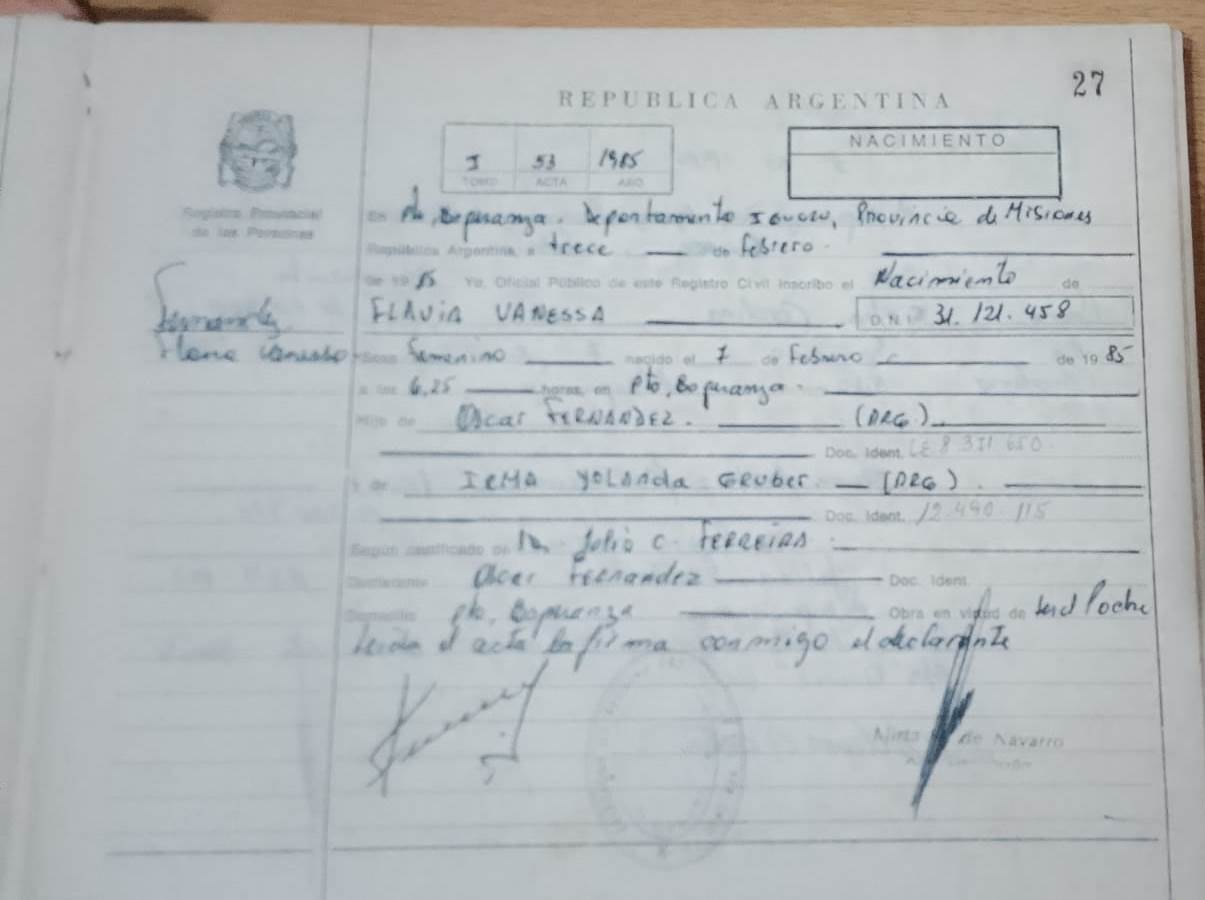 27
REPUBLICA ARGENTINA
NACIMIENTO
I 53 1985
TOMO ACTA AÑO
Registro Provincial
de las Personas
En Pto. Esperanza. Departamento Iguazu, Provincia de Misiones
República Argentina, a trece de Febrero
de 19 85 Yo, Oficial Público de este Registro Civil inscribo el Nacimiento de
Fernandez
FLAVIA VANESSA D.N.I. 31.121.458
Vanessa
Sexo Femenino nacido el 7 de Febrero de 19 85
a las 6,25 horas, en Pto. Esperanza.
Hijo de Oscar FERNANDEZ. (ARG.)
Doc. Ident. LE 8 311 650
Y de IRMA YOLANDA GRUBER (ARG)
Doc. Ident. 12.490.115
Según certificado de Julio C. FERREIRA
Declarante Oscar Fernandez Doc. Ident.
Domicilio Pto. Esperanza Obra en virtud de
Leida el acta la firma conmigo el declarante
de Navarro